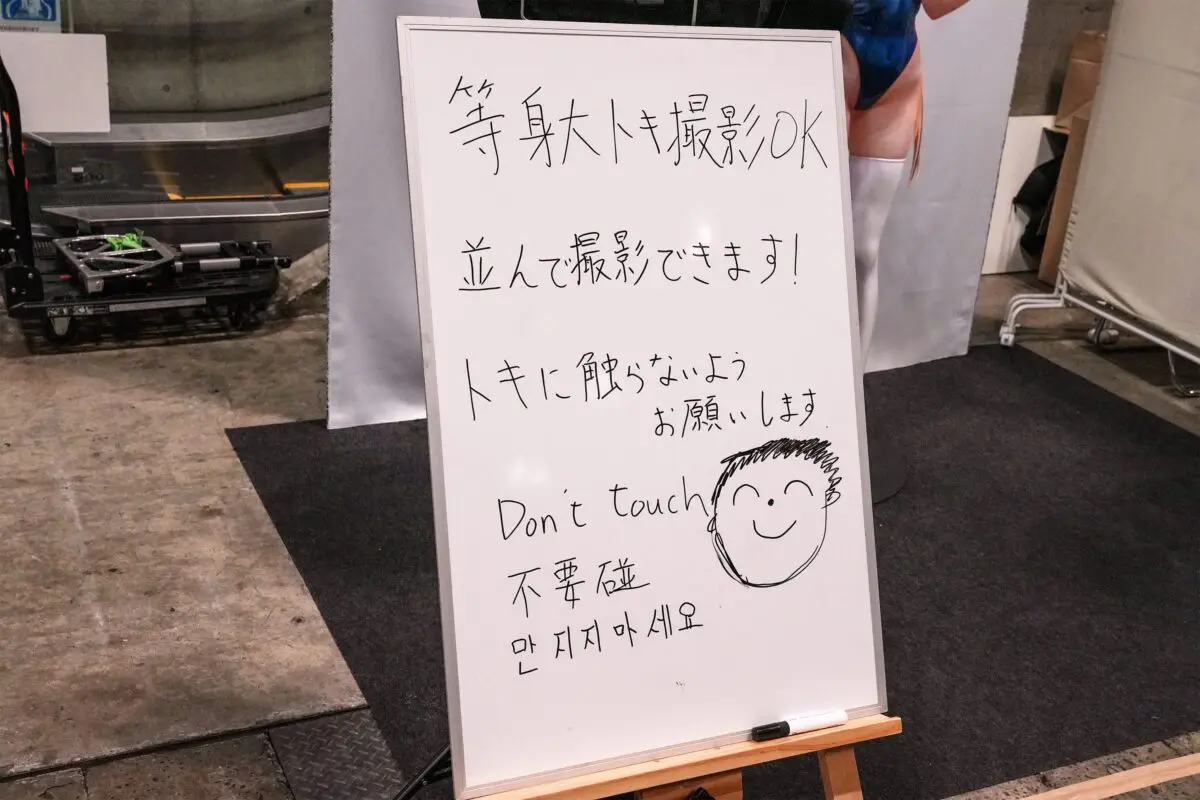 等身大トキ撮影OK
並んで撮影できます!
トキに触らないよう
お願いします
Don't touch
不要碰
만지지마세요